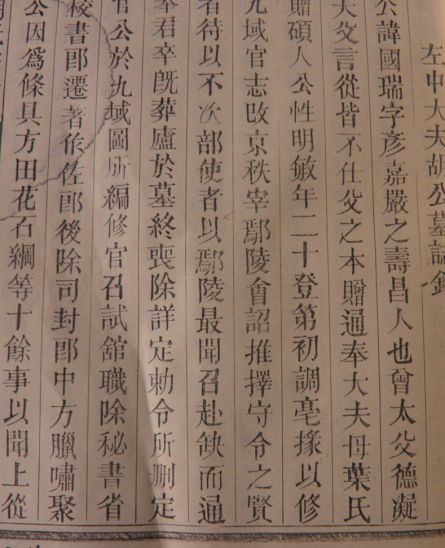 左中大夫胡公墓誌銘
公諱國瑞字彥嘉嚴之壽昌人也曾大父德凝
大父言從皆不仕父之本贈通奉大夫母葉氏
贈碩人公性明敏年二十登第初調亳掾以修
九域官志改京秩宰鄢陵會詔推擇守令之賢
者待以不次部使者以鄢陵最聞召赴缺而通
奉君卒既葬廬於墓終喪除詳定勅令所刪定
官公於九域圖所編修官召試館職除秘書省
校書郎遷著作佐郎後除司封郎中方臘嘯聚
公因爲條具方田花石綱等十餘事以聞上從